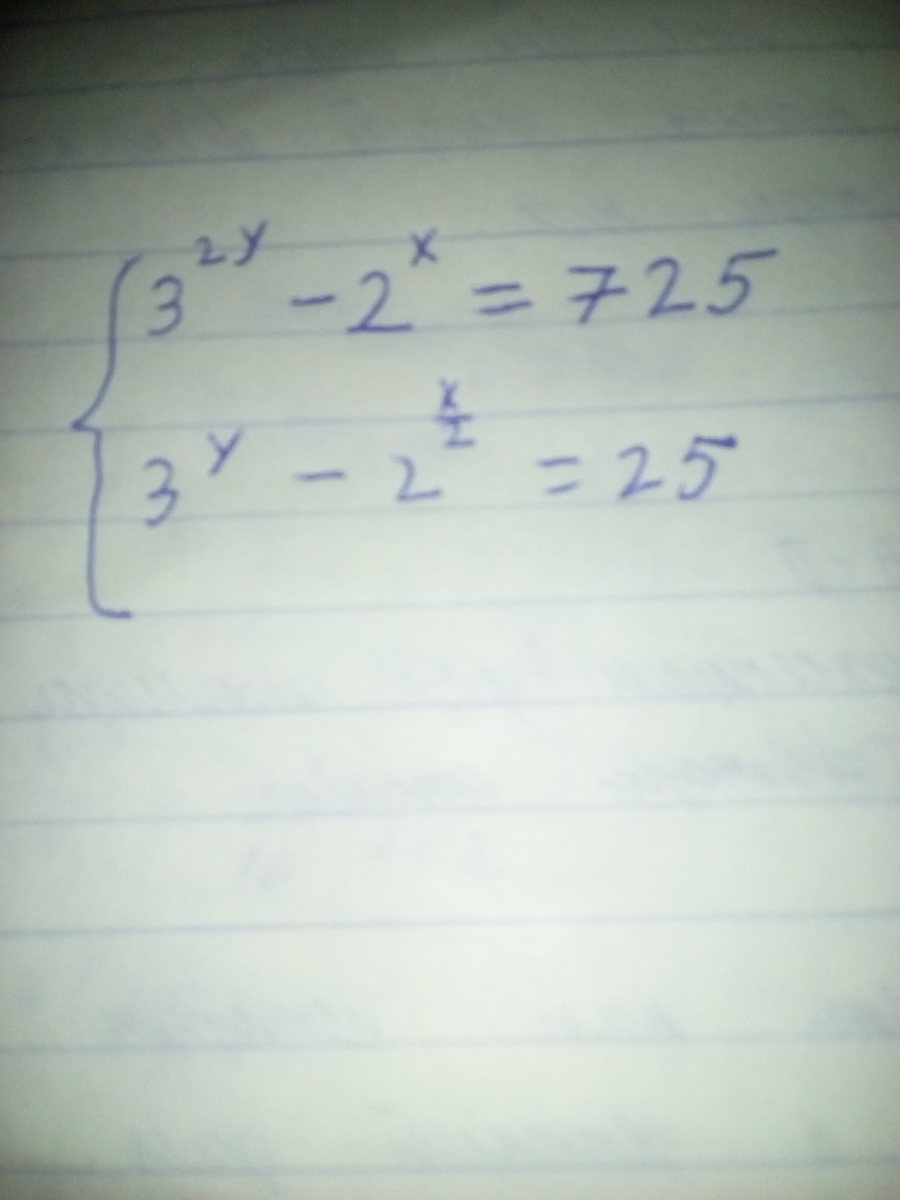 3^{2y} - 2^x = 725
3^y - 2^{\frac{x}{2}} = 25